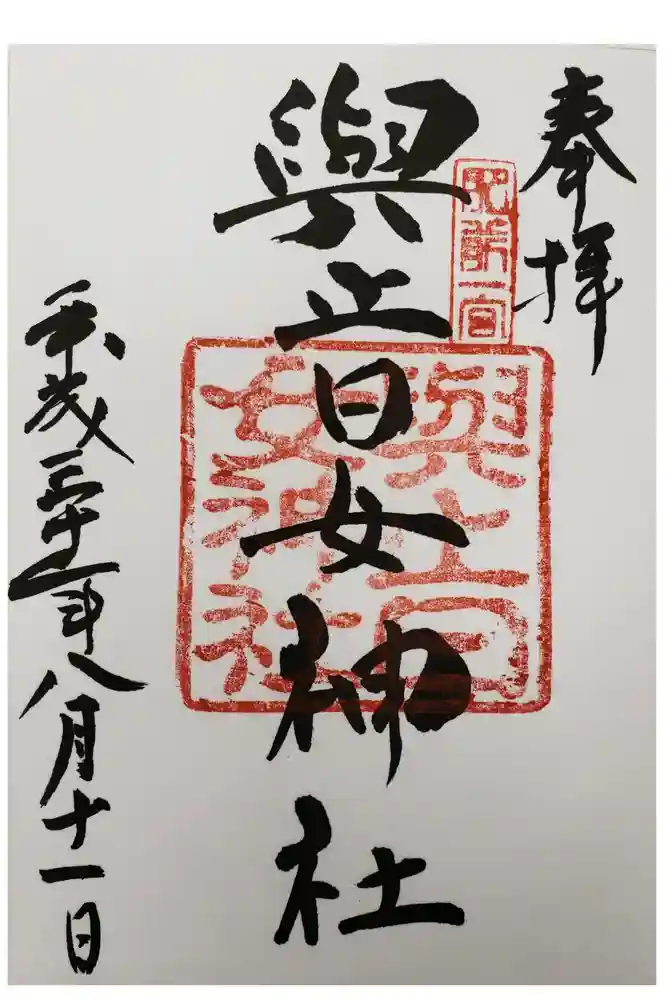 奉拝
肥前一宮
與止日女神社
與止日
女神社
平成三十年八月十一日